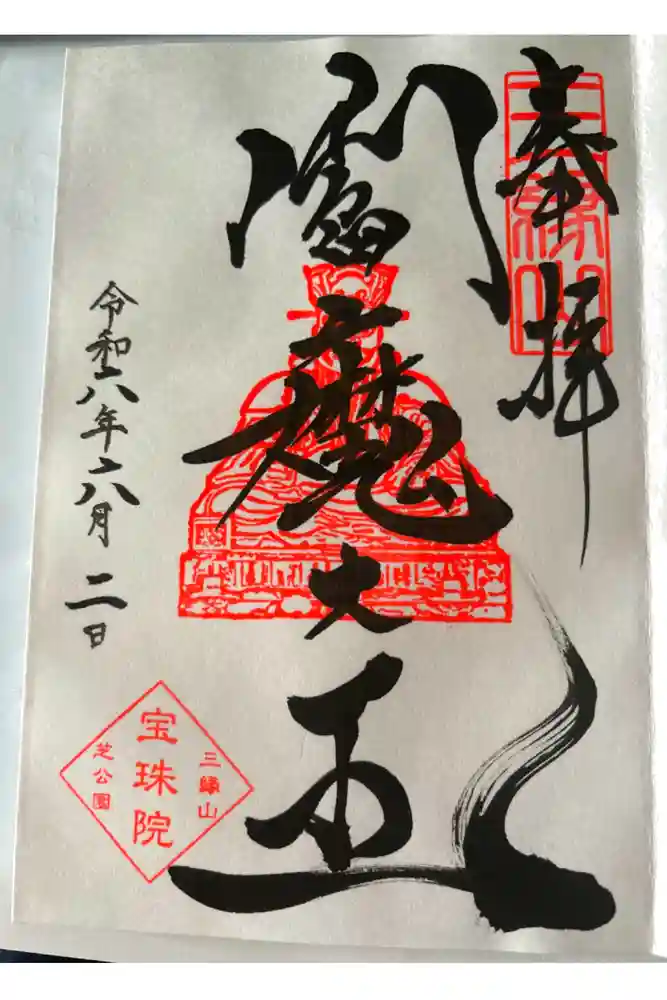 奉拝
三縁山
閻魔大王
令和六年八月二日
三縁山
宝珠院
芝公園